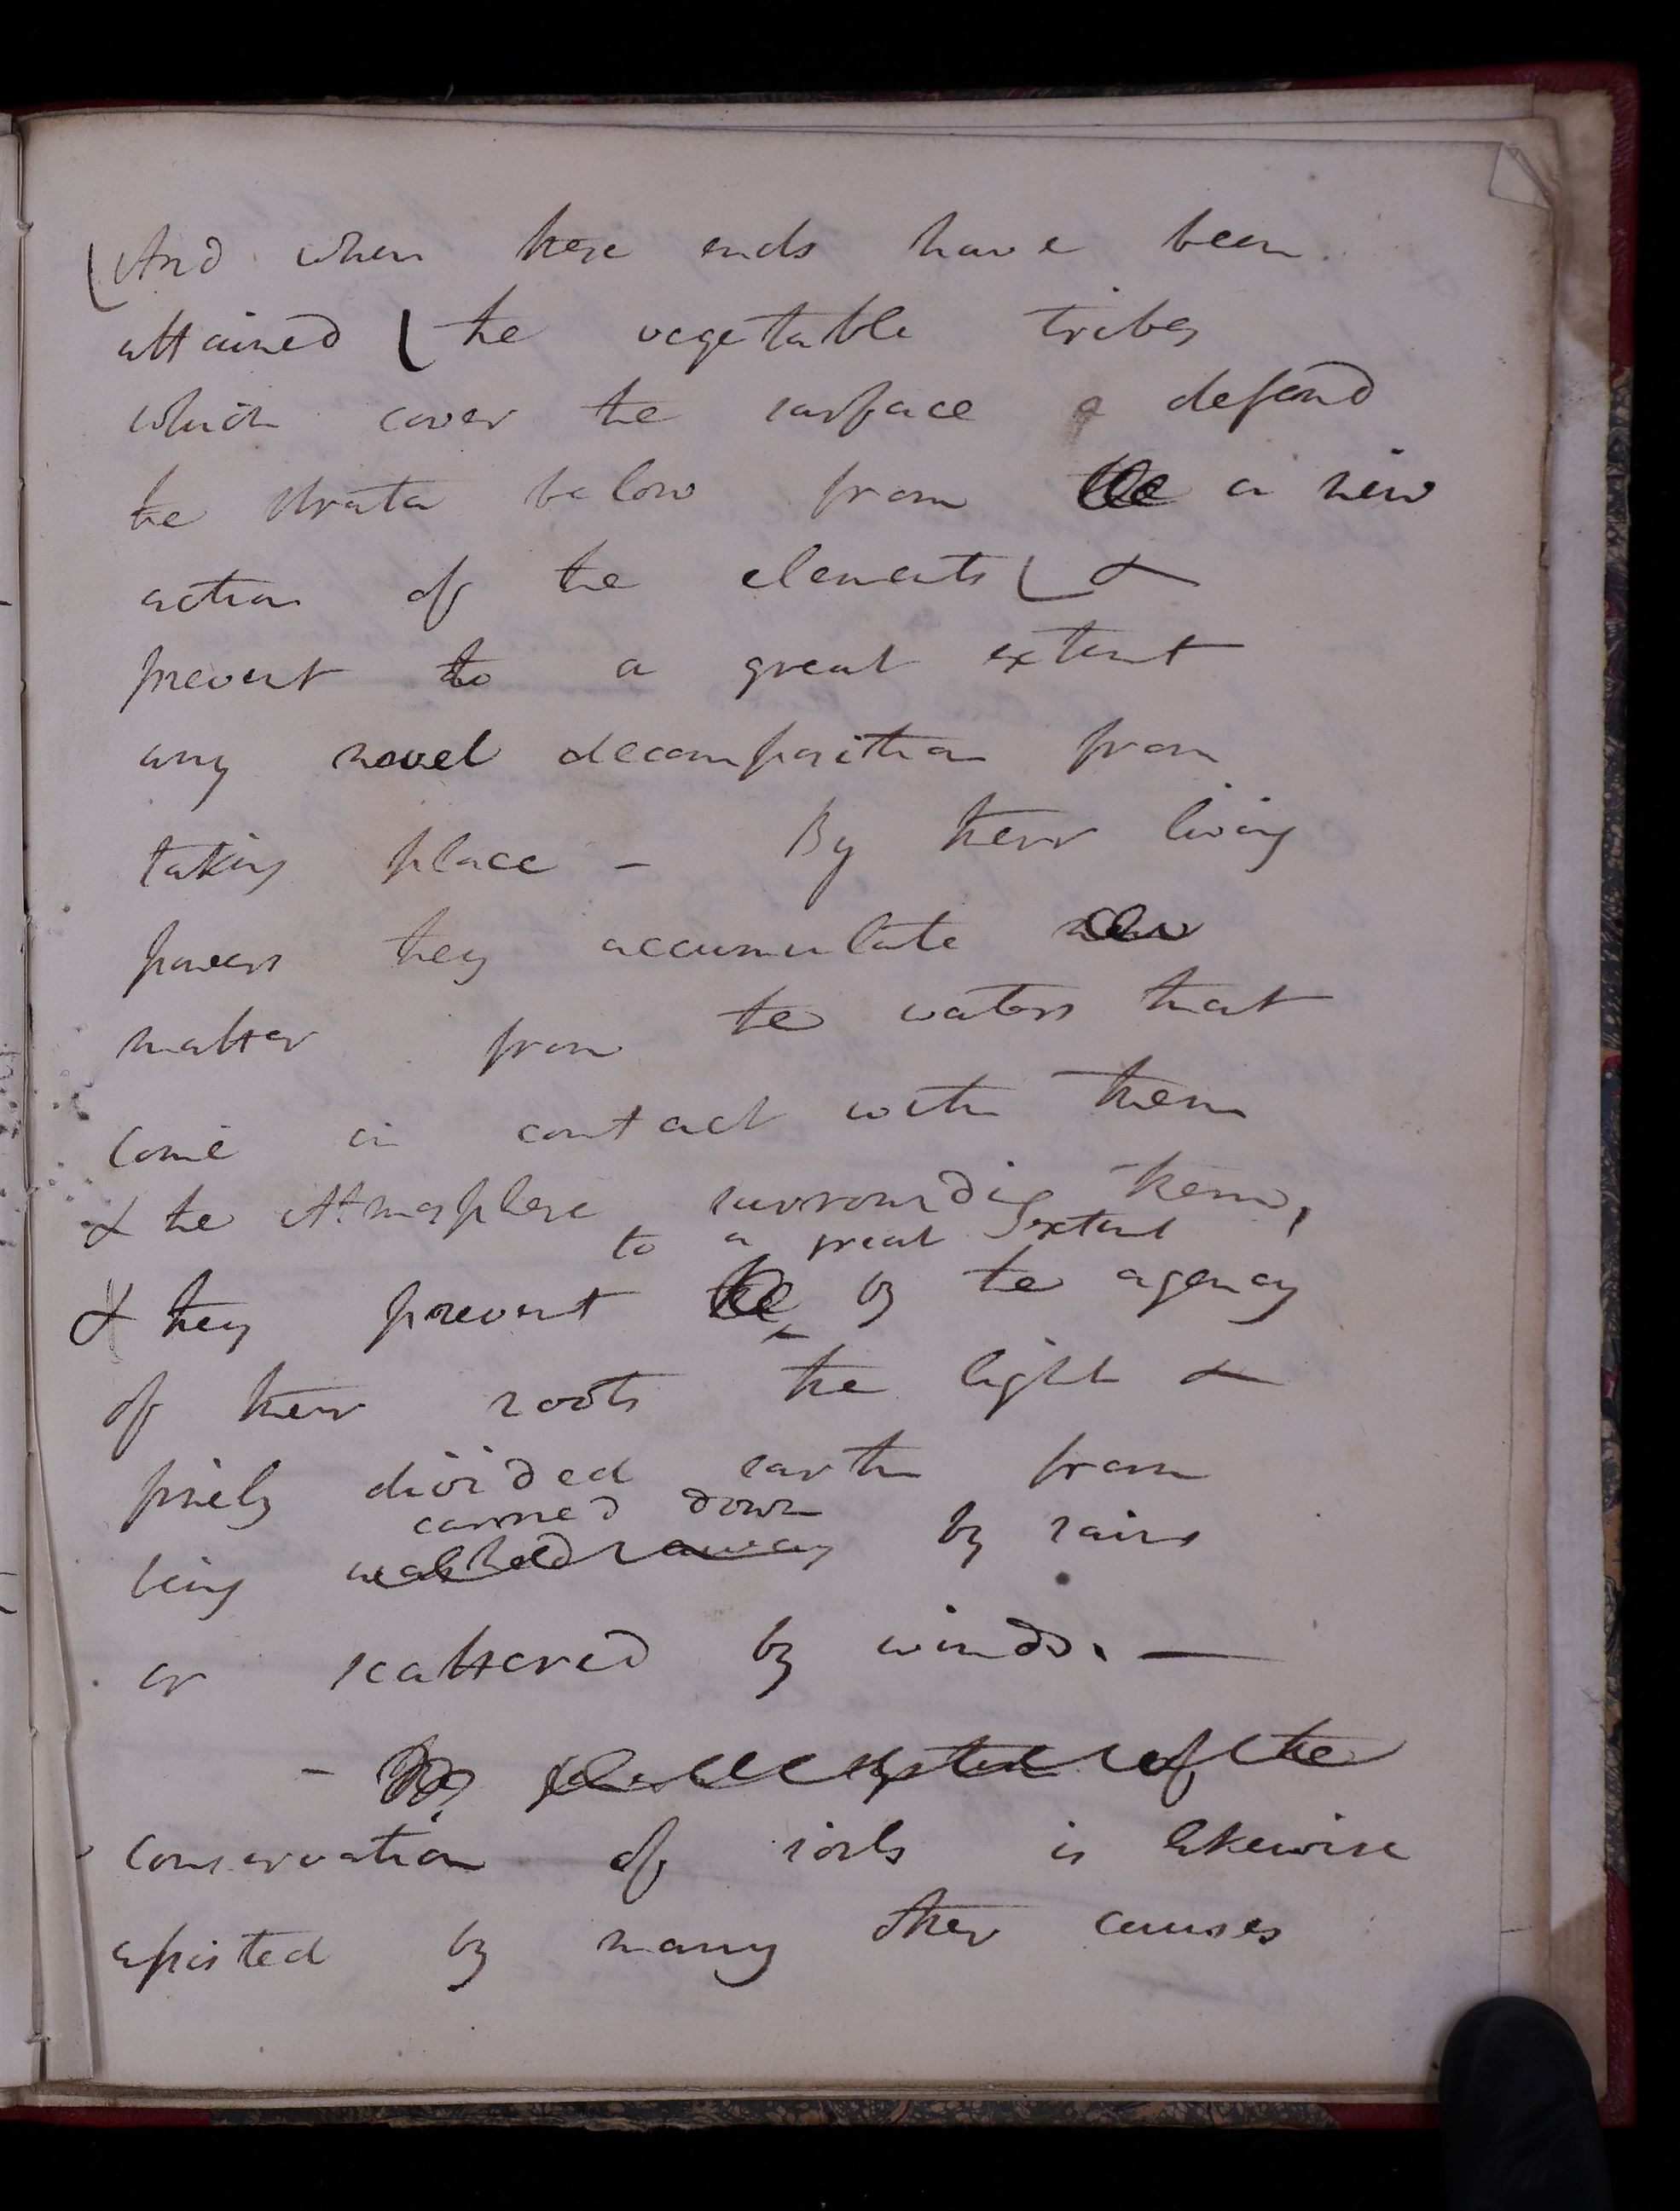 And when these ends have been
attained the vegetable tribes
which cover the surface defend
the strata below from the a new
action of the elements &
prevent to a great extent
any novel decomposition from
taking place - By their living
powers they accumulate new
matter from the waters that
come in contact with them
& the Atmosphere surrounding them,
to a great extent
& they prevent the by the agency
of their roots the light &
finely divided earth from
carried down
being washed away by rains
or scattered by winds. —
- of the
conservation of soils is likewise
assisted by many other causes